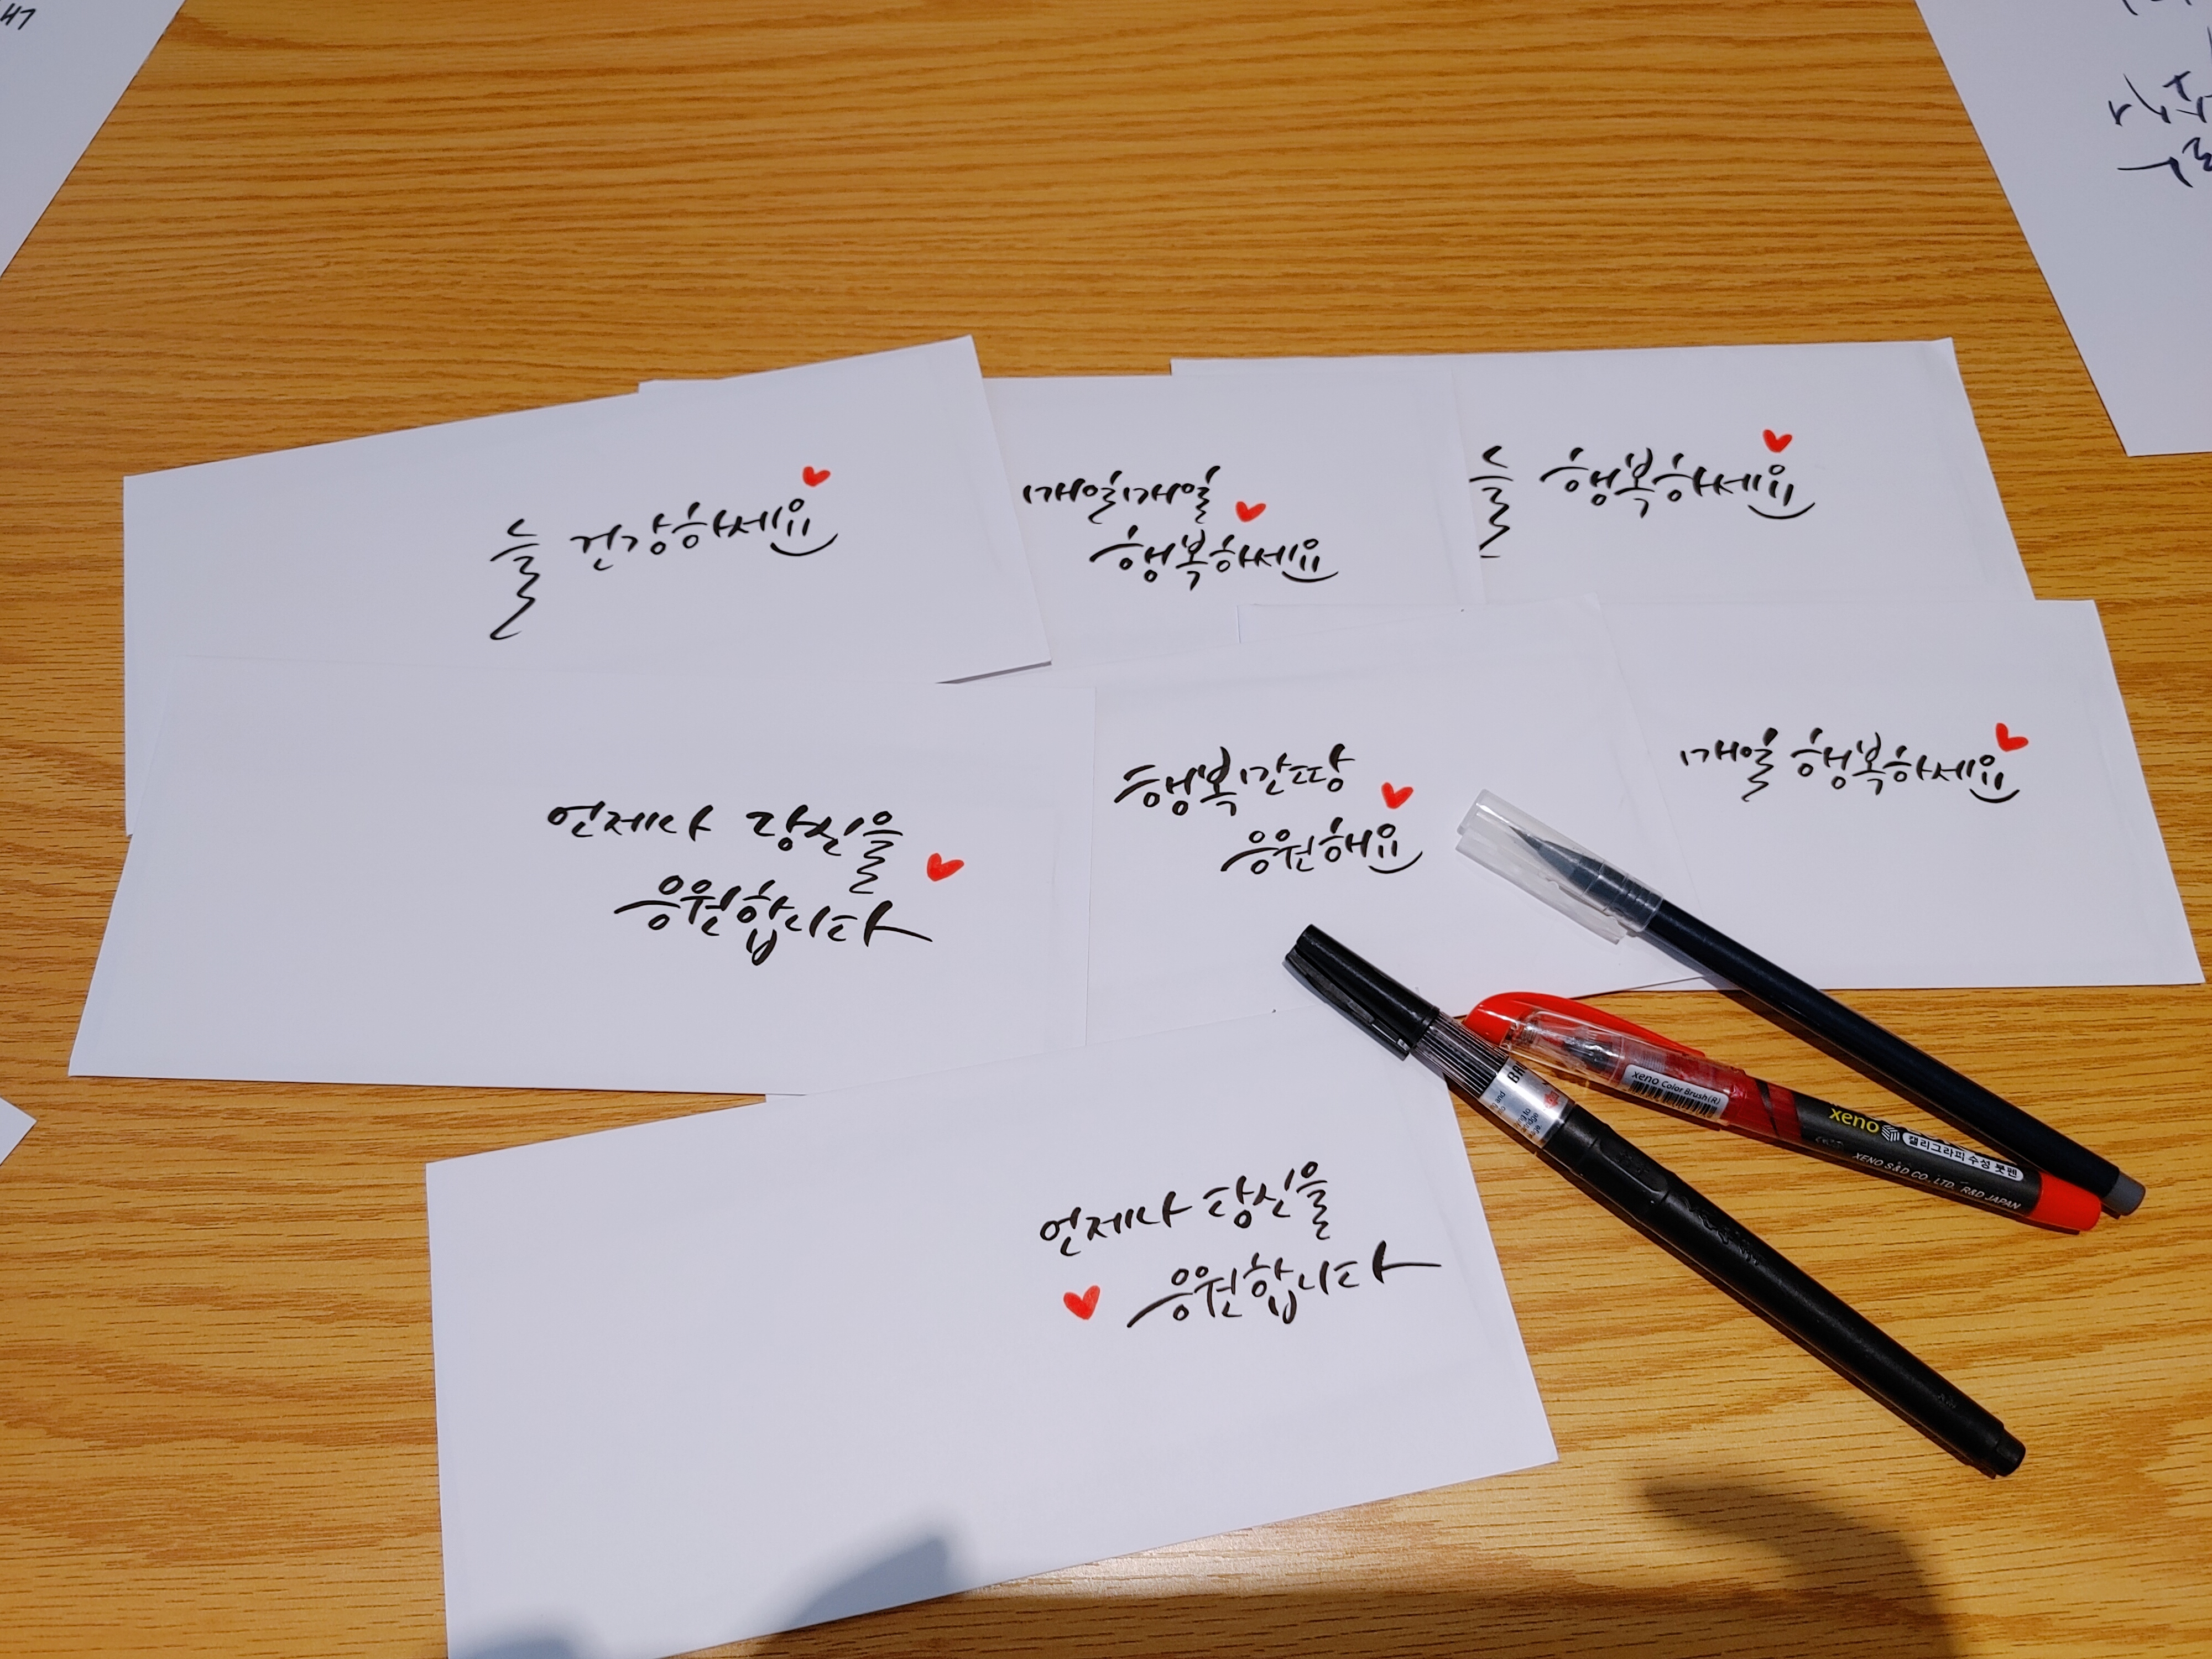 늘 건강하세요
매일매일
행복하세요
늘 행복하세요
언제나 당신을
응원합니다
행복만땅
응원해요
매일 행복하세요
언제나 당신을
응원합니다
xeno Color Brush(R)
xeno
캘리그라피 수성 붓펜
XENO S&D CO., LTD. R&D JAPAN